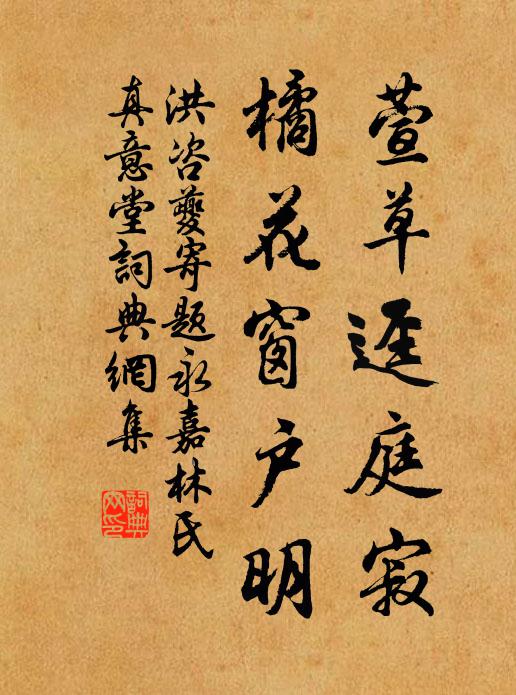 萱草逕庭寂
橘花窗户明
洪咨夔寄題永嘉林氏
真意堂詞典網集
詞典
网印